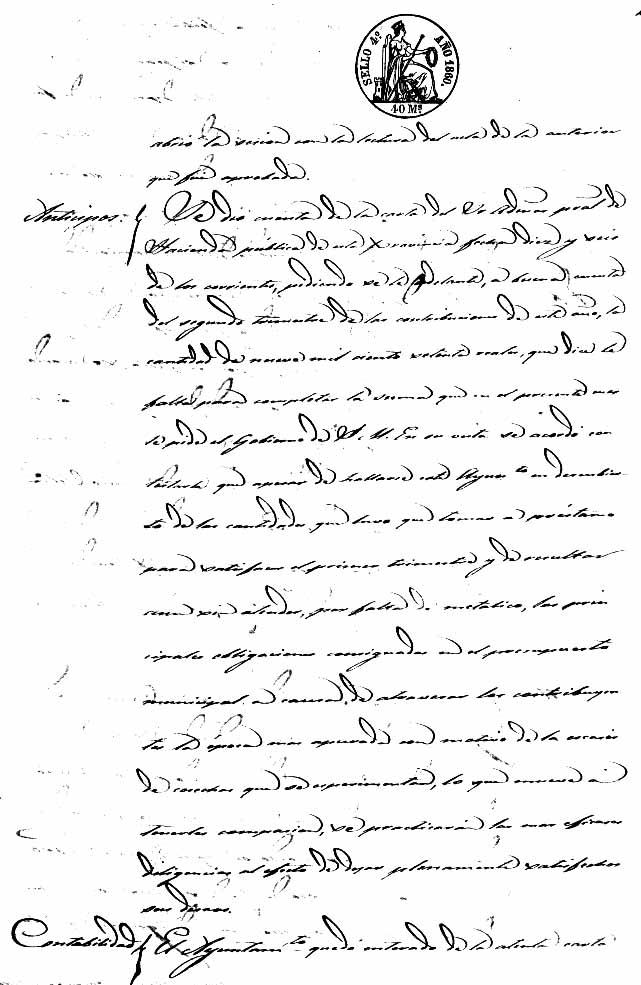 SELLO 4.º AÑO 1860.
40 M.s
abrió la sesion con la lectura del acta de la anterior
que fué aprobada.
Anticipos. Se dió cuenta de la nota del Sr. Admor. pral. de
Hacienda pública de esta Provincia fecha diez y seis
de los corrientes, pidiendo se le adelante, á buena cuenta
del segundo trimestre de las contribuciones de este año, la
cantidad de nueve mil ciento setenta reales, que dice le
faltan para completar la suma que en el presente mes
le pide el Gobierno de S. M. En su vista se acordó con
testarle que apesar de hallarse este Ayunto. en descubier
to de las cantidades que tuvo que tomar á préstamo
para satisfacer el primer trimestre y de resultar
aun sin cubrir, por falta de metálico, las prin
cipales obligaciones consignadas en el presupuesto
municipal á causa de atravesar los contribuyen
tes la época mas apurada con motivo de la escasez
de cosechas que se experimenta, lo que mueve á
tenerles compasion, se practicarán las mas eficaces
diligencias al efecto de dejar plenamente satisfechos
sus deseos.
Contabilidad El Ayuntamto. quedó enterado de la atenta carta